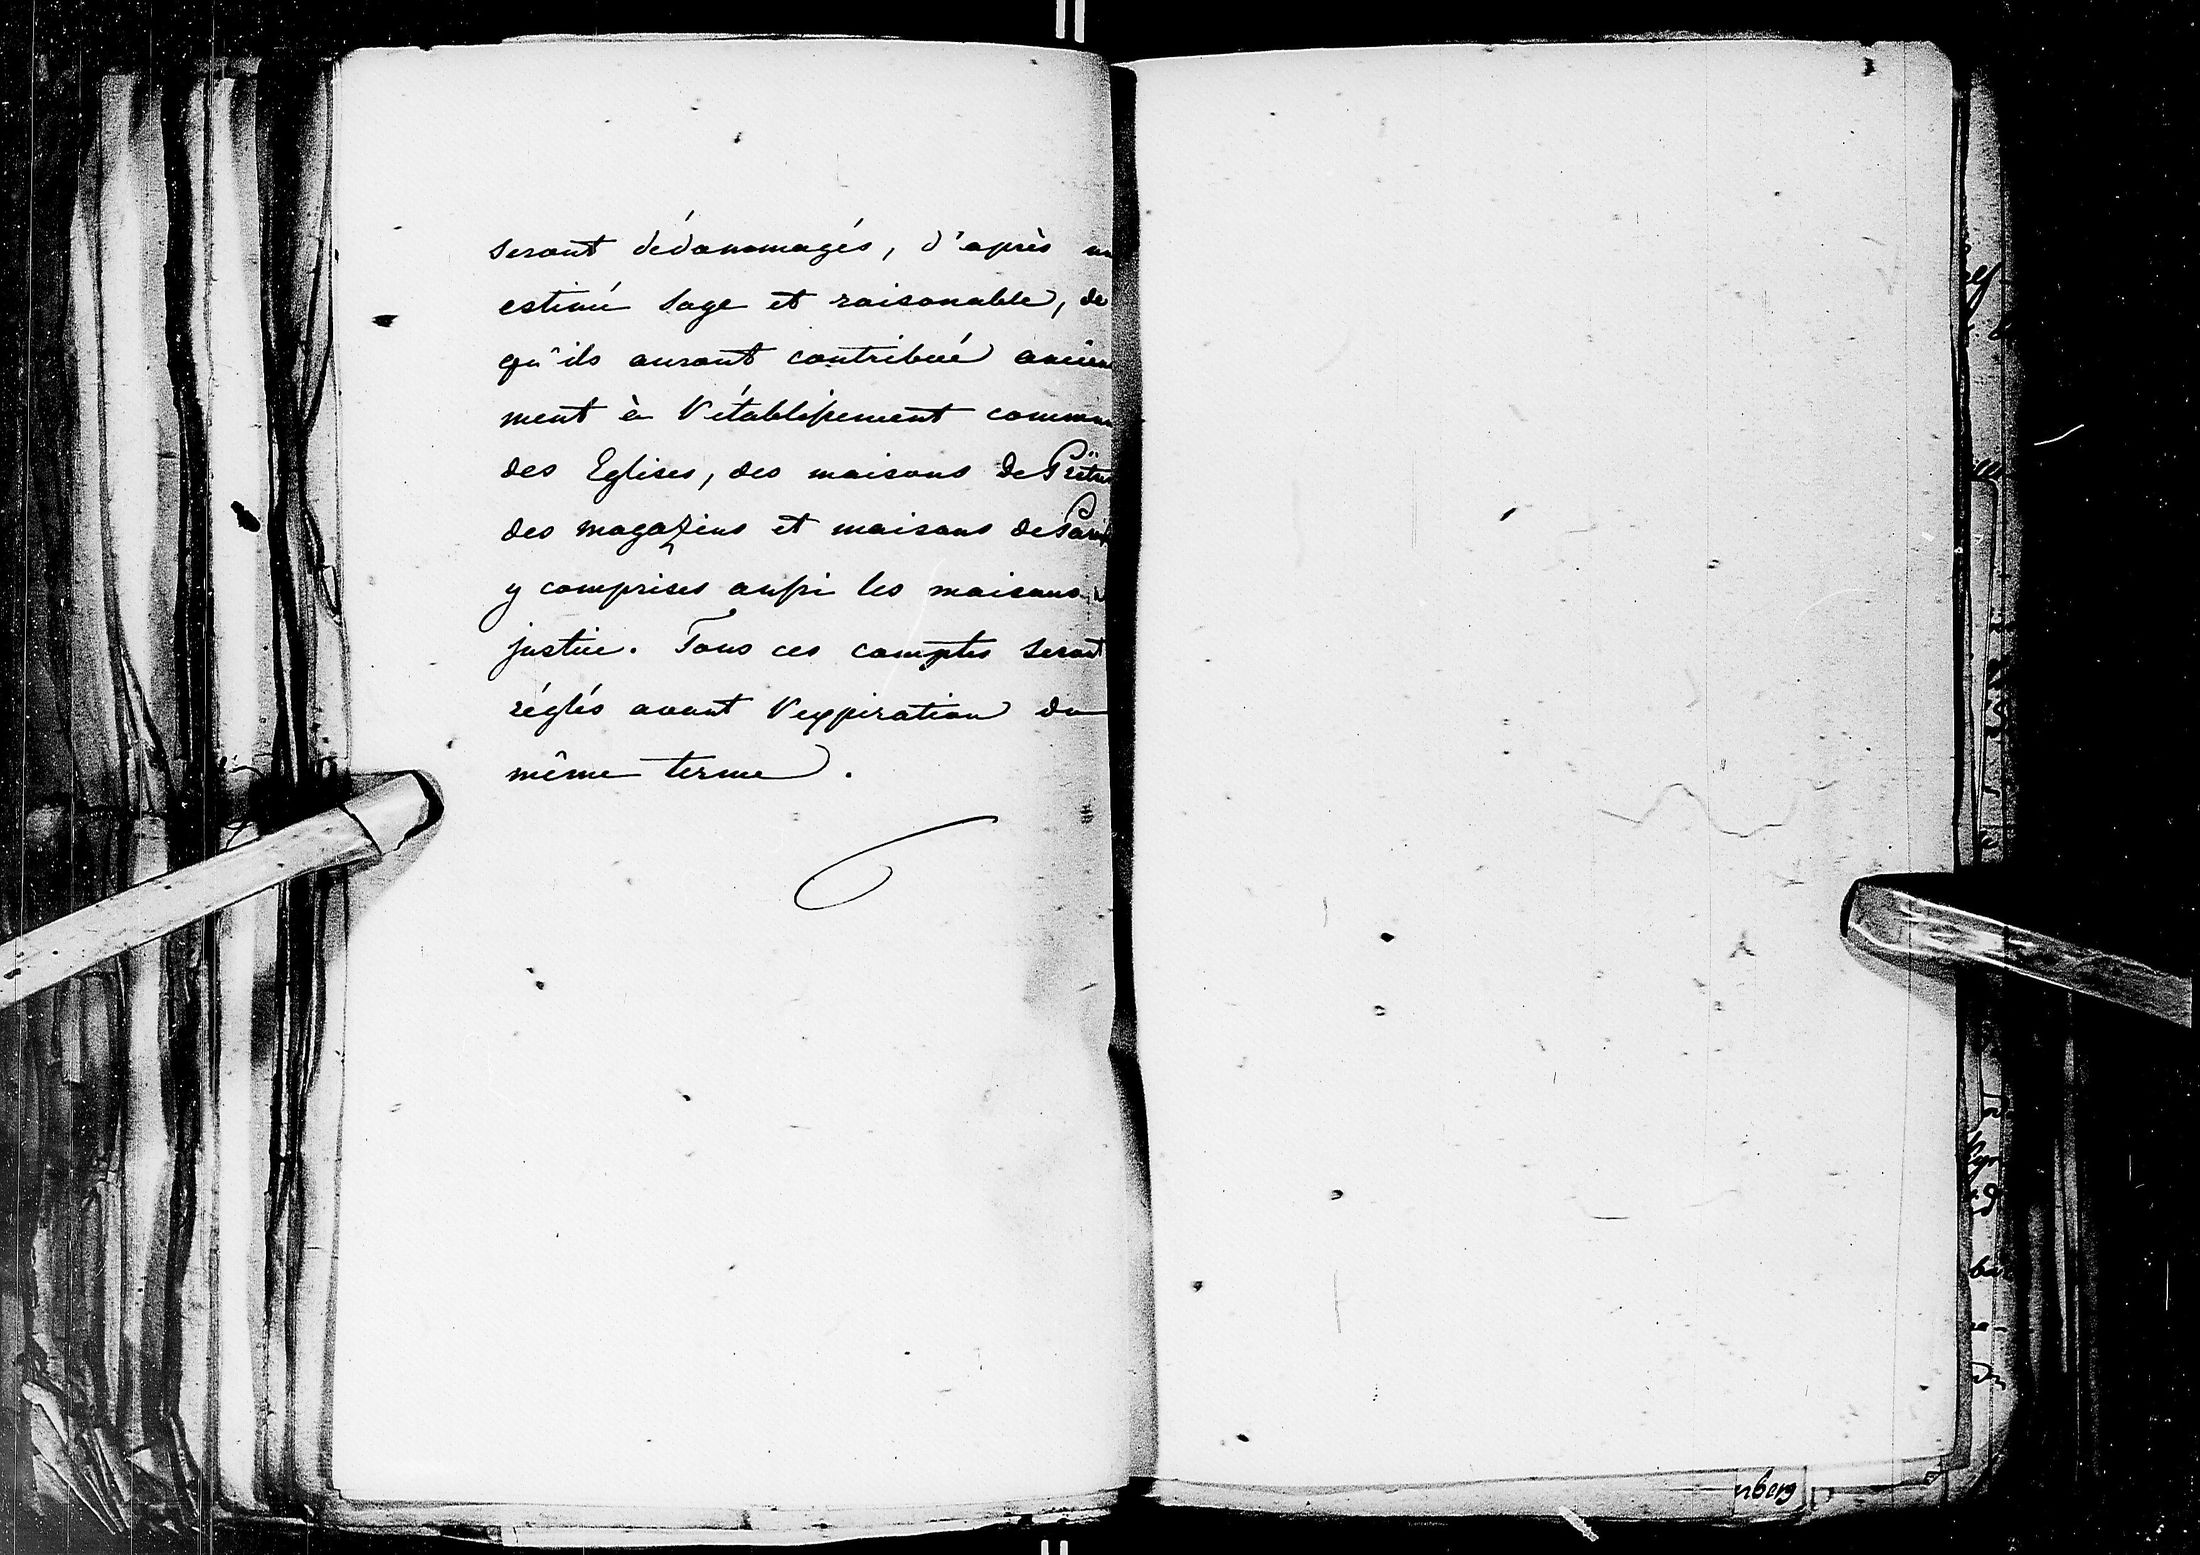 seront dédommagés, d'après un
estimé sage et raisonable, de
qu'ils auront contribué ancien
ment à l'établissement commun
des Eglises, des maisons de Prêtres
des magazins et maisons de
y comprises aussi les maisons
justice. Tous ces comptes seront
réglés avant l'expiration du
même terme.
nberg